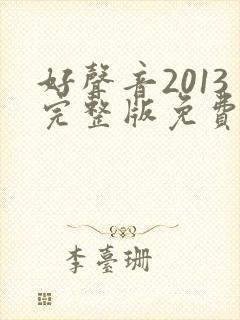 好聲音2013
完整版免費
李臺珊